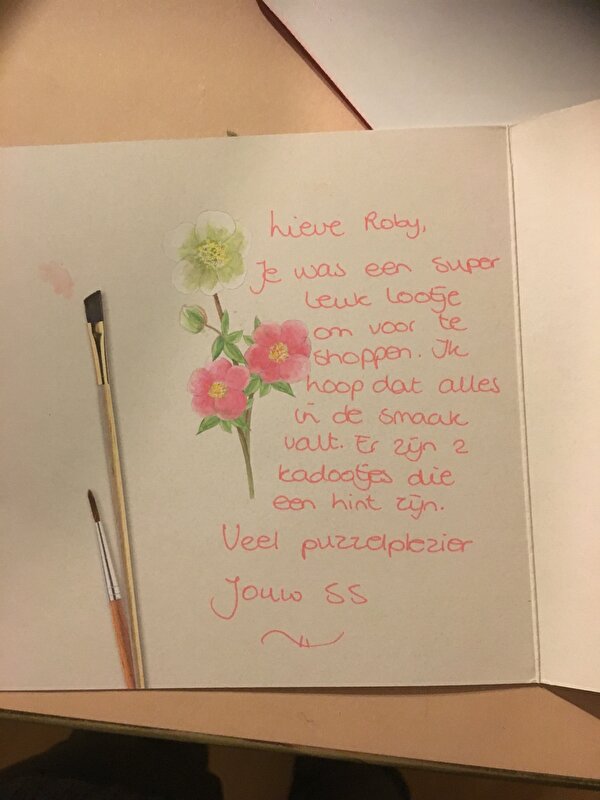 Lieve Roby,
Je was een super
leuk lootje
om voor te
shoppen. Ik
hoop dat alles
in de smaak
valt. Er zijn 2
kadootjes die
een hint zijn.
Veel puzzelplezier
Jouw SS